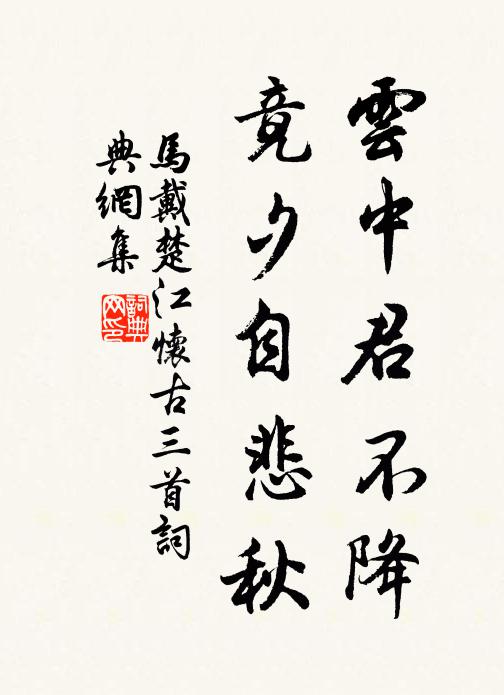 雲中君不降
竟夕自悲秋
馬戴楚江懷古三首詞
典網集
詞典
网印